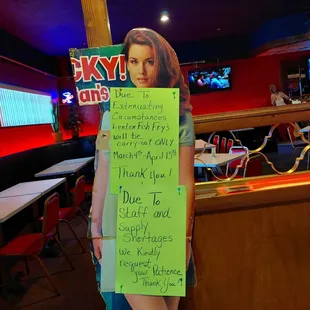 CKY!
an's
Due To
Extenuating
Circumstances
Lenten Fish Frys
will be
carry-out only
March 4th - April 15th
Thank You!
Due To
Staff and
Supply
Shortages
We Kindly
request
your Patience
Thank You!